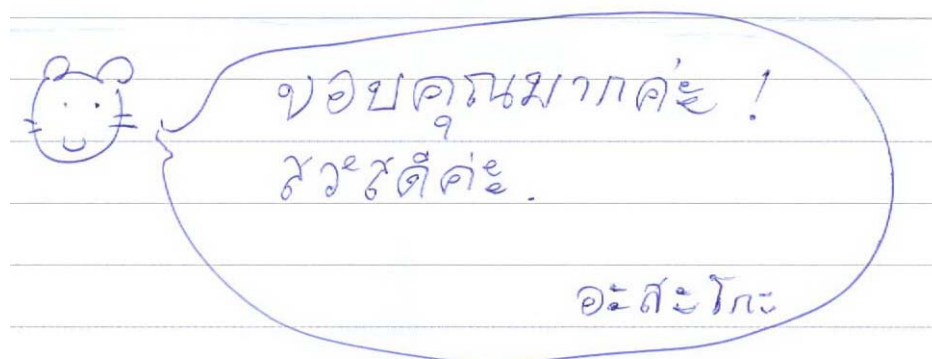 ขอบคุณมากค่ะ!
สวะสดีค่ะ.
อะสะโกะ